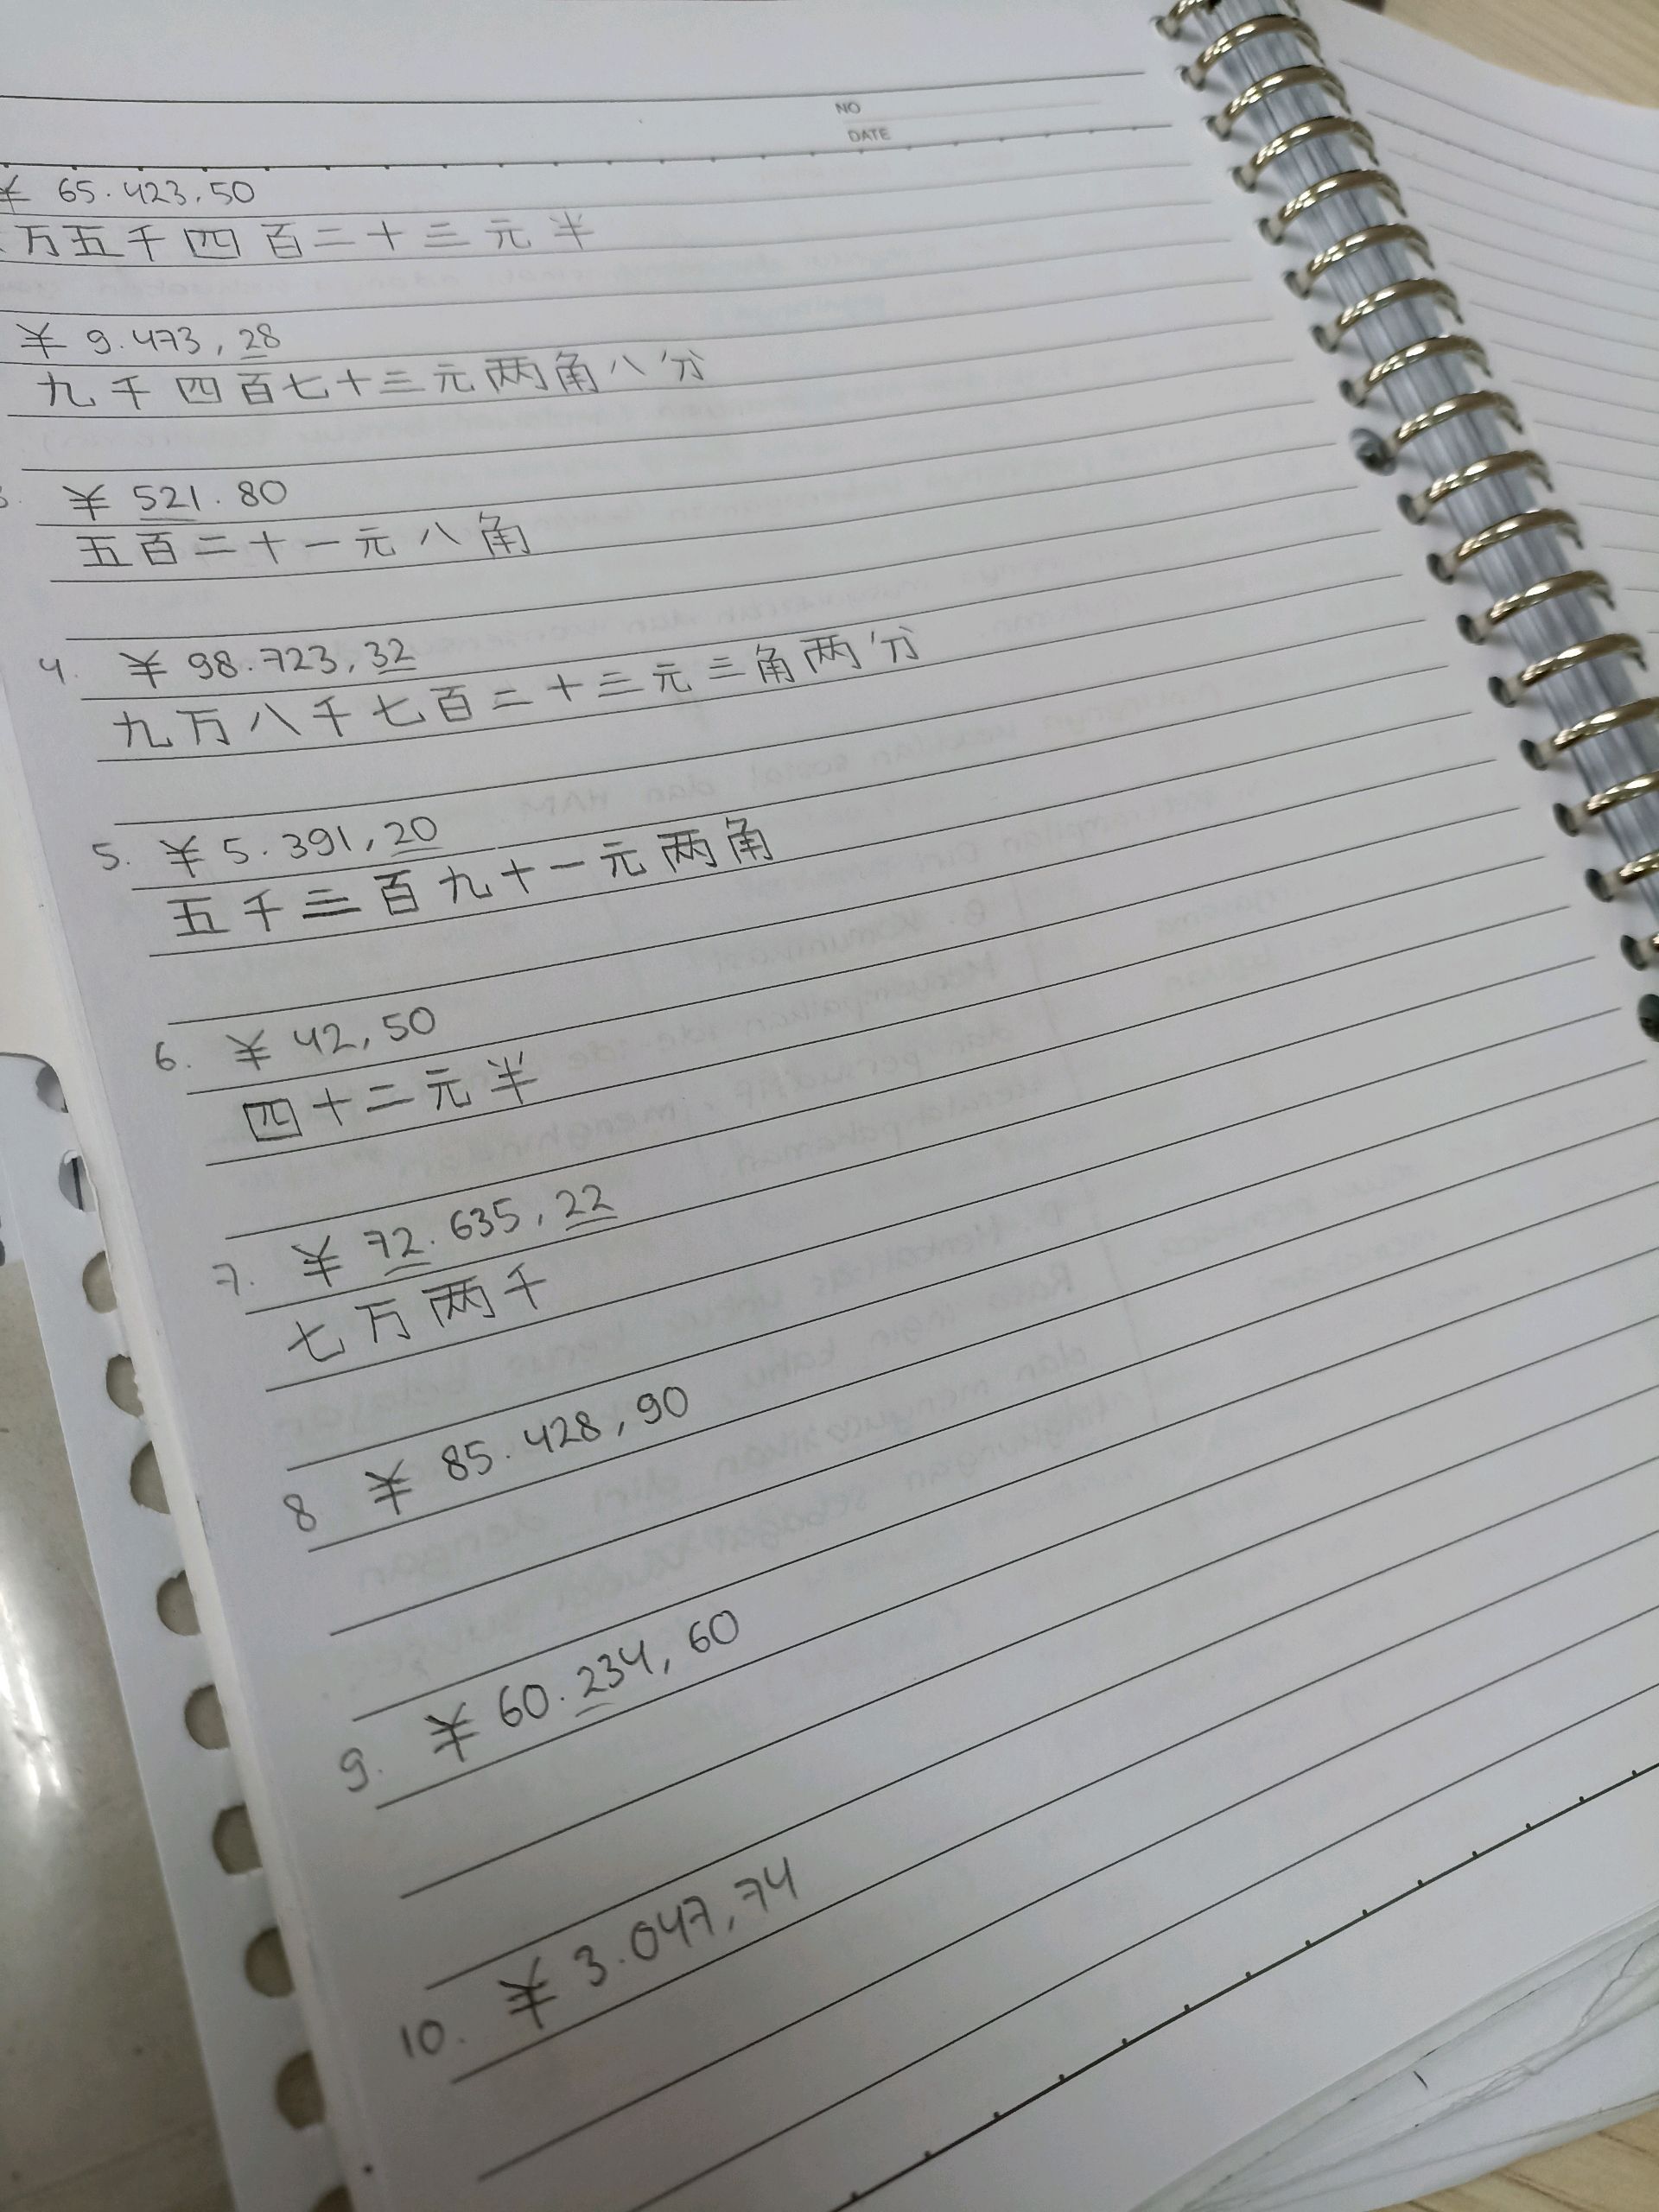 NO
DATE
¥ 65.423,50
万五千四百二十三元半
¥ 9.473,28
九千四百七十三元两角八分
3. ¥ 521.80
五百二十一元八角
4. ¥ 98.723,32
九万八千七百二十三元三角两分
5. ¥ 5.391,20
五千三百九十一元两角
6. ¥ 42,50
四十二元半
7. ¥ 72.635,22
七万两千
8 ¥ 85.428,90
9. ¥ 60.234,60
10. ¥ 3.047,74